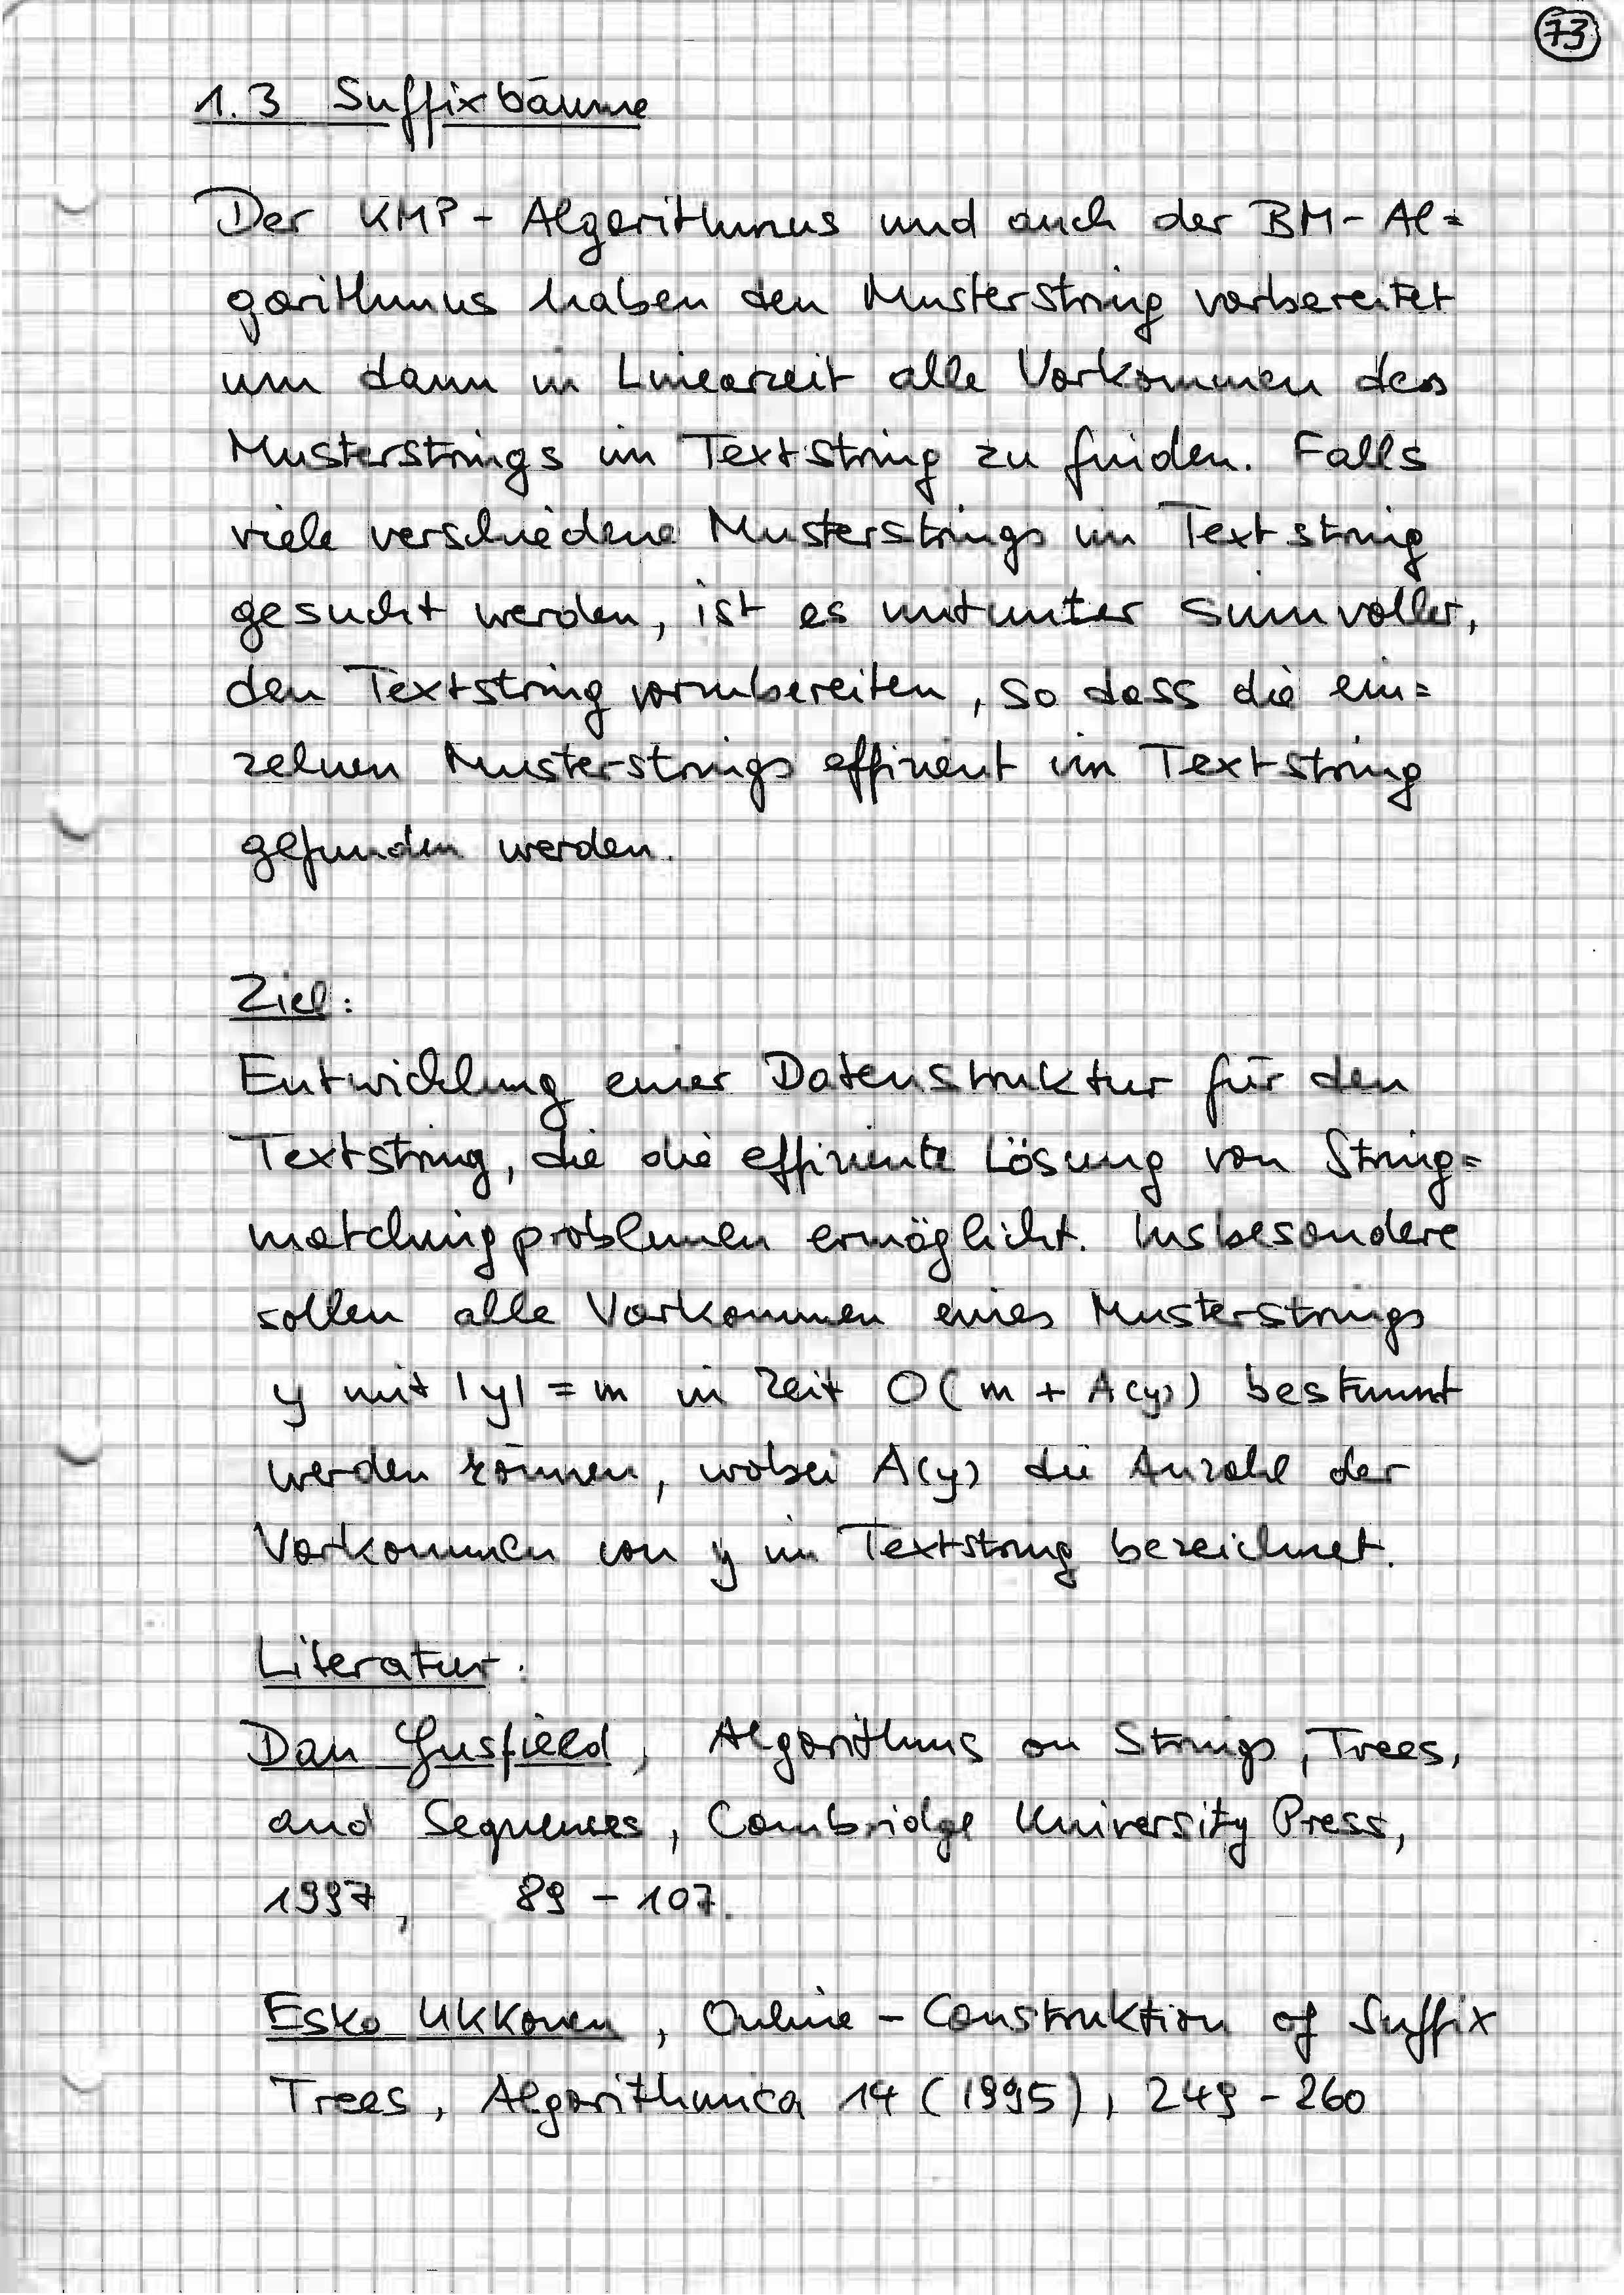 73
1.3 Suffixbäume
Der KMP-Algorithmus und auch der BM-Al=
gorithmus haben den Musterstring vorbereitet
um dann in Linearzeit alle Vorkommen des
Musterstrings im Textstring zu finden. Falls
viele verschiedene Musterstrings im Textstring
gesucht werden, ist es mitunter sinnvoller,
den Textstring vorzubereiten, so dass die ein=
zelnen Musterstrings effizient im Textstring
gefunden werden.
Ziel:
Entwicklung einer Datenstruktur für den
Textstring, die die effiziente Lösung von String=
matchingproblemen ermöglicht. Insbesondere
sollen alle Vorkommen eines Musterstrings
y mit |y| = m in Zeit O(m + A(y)) bestimmt
werden können, wobei A(y) die Anzahl der
Vorkommen von y im Textstring bezeichnet.
Literatur:
Dan Gusfield, Algorithms on Strings, Trees,
and Sequences, Cambridge University Press,
1997, 89 - 107.
Esko Ukkonen, Online-Construktion of Suffix
Trees, Algorithmica 14 (1995), 249 - 260